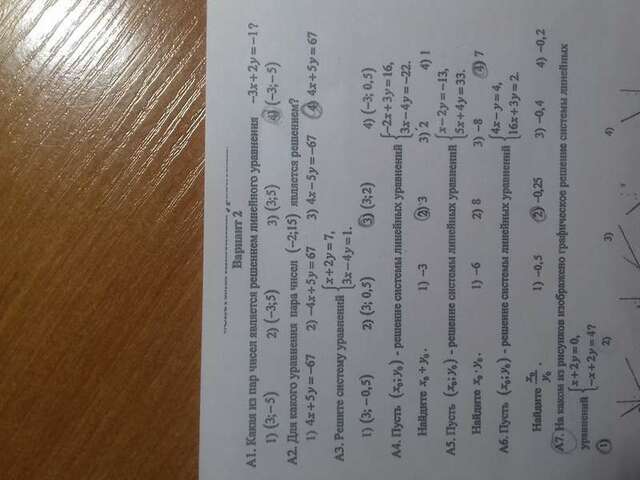 Вариант 2
А1. Какая из пар чисел является решением линейного уравнения -3x+2y=-1?
1) (3;-5) 2) (-3;5) 3) (3;5) 4) (-3;-5)
А2. Для какого уравнения пара чисел (-2;15) является решением?
1) 4x+5y=-67 2) -4x+5y=67 3) 4x-5y=-67 4) 4x+5y=67
А3. Решите систему уравнений { x+2y=7,
3x-4y=1.
1) (3;-0,5) 2) (3;0,5) 3) (3;2) 4) (-3;0,5)
А4. Пусть (x₀;y₀) - решение системы линейных уравнений { -2x+3y=16,
3x-4y=-22.
Найдите x₀+y₀. 1) -3 2) 3 3) 2 4) 1
А5. Пусть (x₀;y₀) - решение системы линейных уравнений { x-2y=-13,
5x+4y=33.
Найдите x₀·y₀. 1) -6 2) 8 3) -8 4) 7
А6. Пусть (x₀;y₀) - решение системы линейных уравнений { 4x-y=4,
16x+3y=2.
Найдите x₀/y₀. 1) -0,5 2) -0,25 3) -0,4 4) -0,2
А7. На каком из рисунков изображено графическое решение системы линейных
уравнений { x+2y=0,
-x+2y=4?
1) 2) 3) 4)